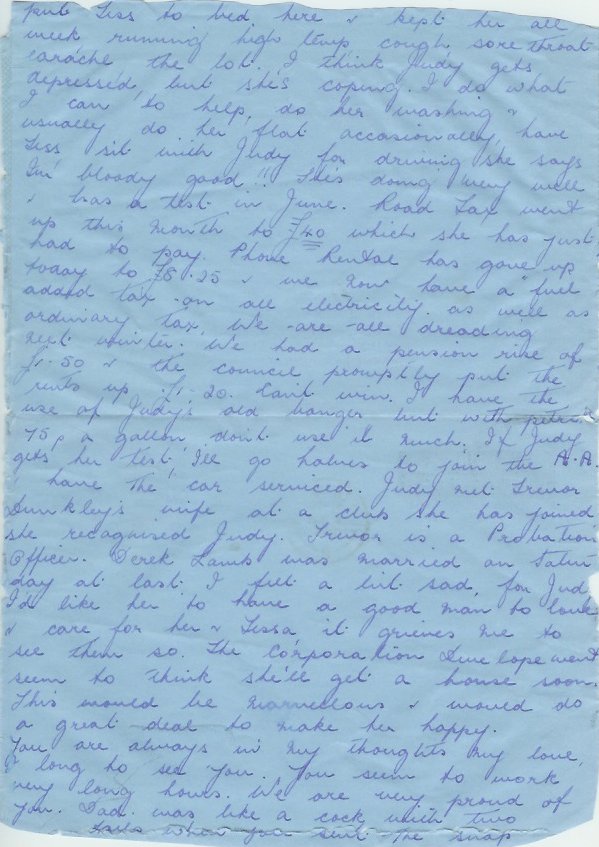 put Liss to bed here & kept her all
week running high temp cough sore throat
earache the lot. I think Judy gets
depressed, but she's coping. I do what
I can to help, do her washing &
usually do her flat accasionaley, have
Liss sit with Judy for driving she says
I'm bloody good!! She's doing very well
& has a test in June. Road Tax went
up this month to £40 which she has just
had to pay. Phone Rental has gone up
today to £8.25 & we now have a fuel
added tax on all electricity as well as
ordinary tax. We are all dreading
next winter. We had a pension rise of
£1-50 & the council promptly put the
rents up £1-20. Can't win. I have the
use of Judy's old banger but with petrol
75p a gallon don't use it much. If Judy
gets her test, I'll go halves to join the A.A.
& have the car serviced. Judy met Trevor
Dunkley's wife at a club she has joined
she recognised Judy. Trevor is a Probation
Officer. Derek Lamb was married on Satur
day at last. I felt a bit sad, for Judy
I'd like her to have a good man to love
& care for her & Lissa it grieves me to
see them so. The Corporation
seem to think she'll get a house soon.
This would be marvellous & would do
a great deal to make her happy.
You are always in my thoughts my love,
I long to see you. You seem to work
very long hours. We are very proud of
you. Dad was like a cock with two
tails when you sent the snap